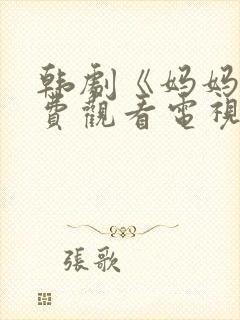 韩劇《妈妈
費觀看電視
張歌